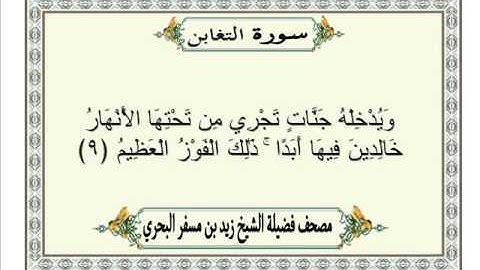 سورة التغابن
وَيُدْخِلْهُ جَنَّاتٍ تَجْرِي مِن تَحْتِهَا الأَنْهَارُ
خَالِدِينَ فِيهَا أَبَدًا ۚ ذَلِكَ الفَوْزُ العَظِيمُ (٩)
مصحف فضيلة الشيخ زيد بن مسفر البحري